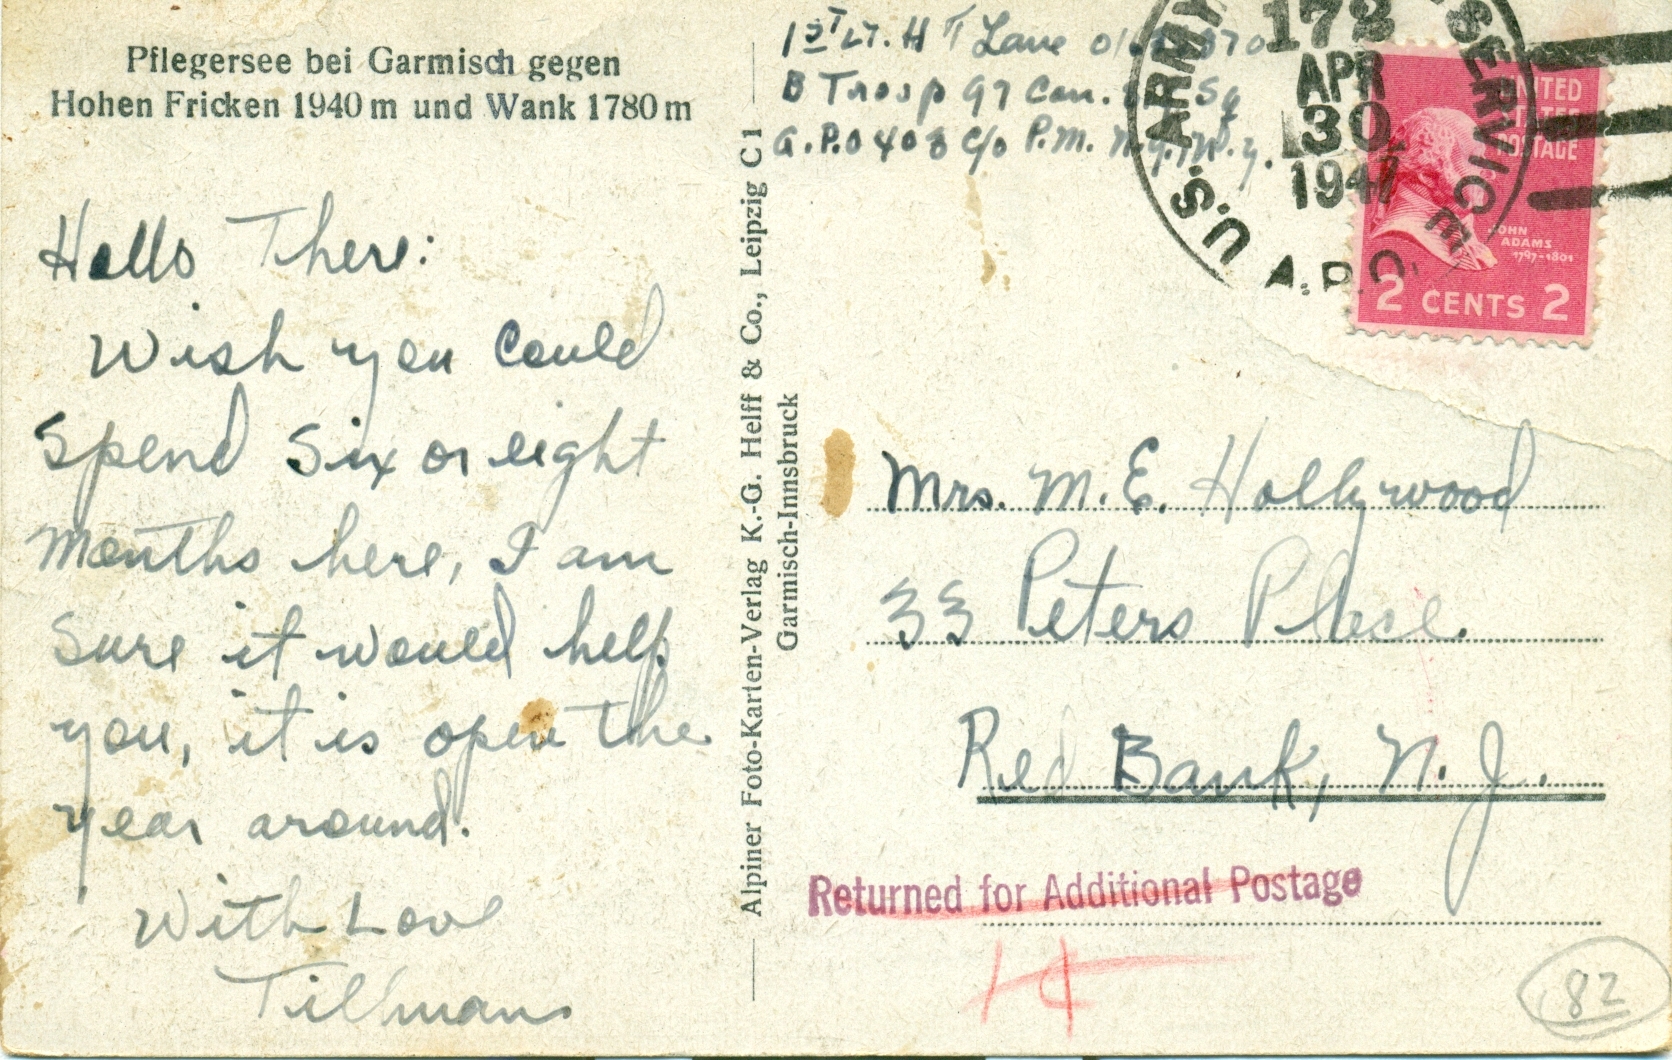 Pflegersee bei Garmisch gegen
Hohen Fricken 1940 m und Wank 1780 m
Hello There:
Wish you could
spend six or eight
months here, I am
sure it would help
you, it is open the
year around.
With Love
Tillman
Alpiner Foto-Karten-Verlag K.-G. Helff & Co., Leipzig C 1
Garmisch-Innsbruck
1ST LT. H T Lane
B Troop 97 Con. Sq
A.P.O 403 c/o P.M. N.Y., N.Y.
U.S. ARMY SERVICE
172
APR
30
1947
A.P.O.
UNITED
STATES
POSTAGE
JOHN
ADAMS
1797-1801
2 CENTS 2
Mrs. M. E. Hollywood
33 Peters Place.
Red Bank, N. J.
Returned for Additional Postage
82